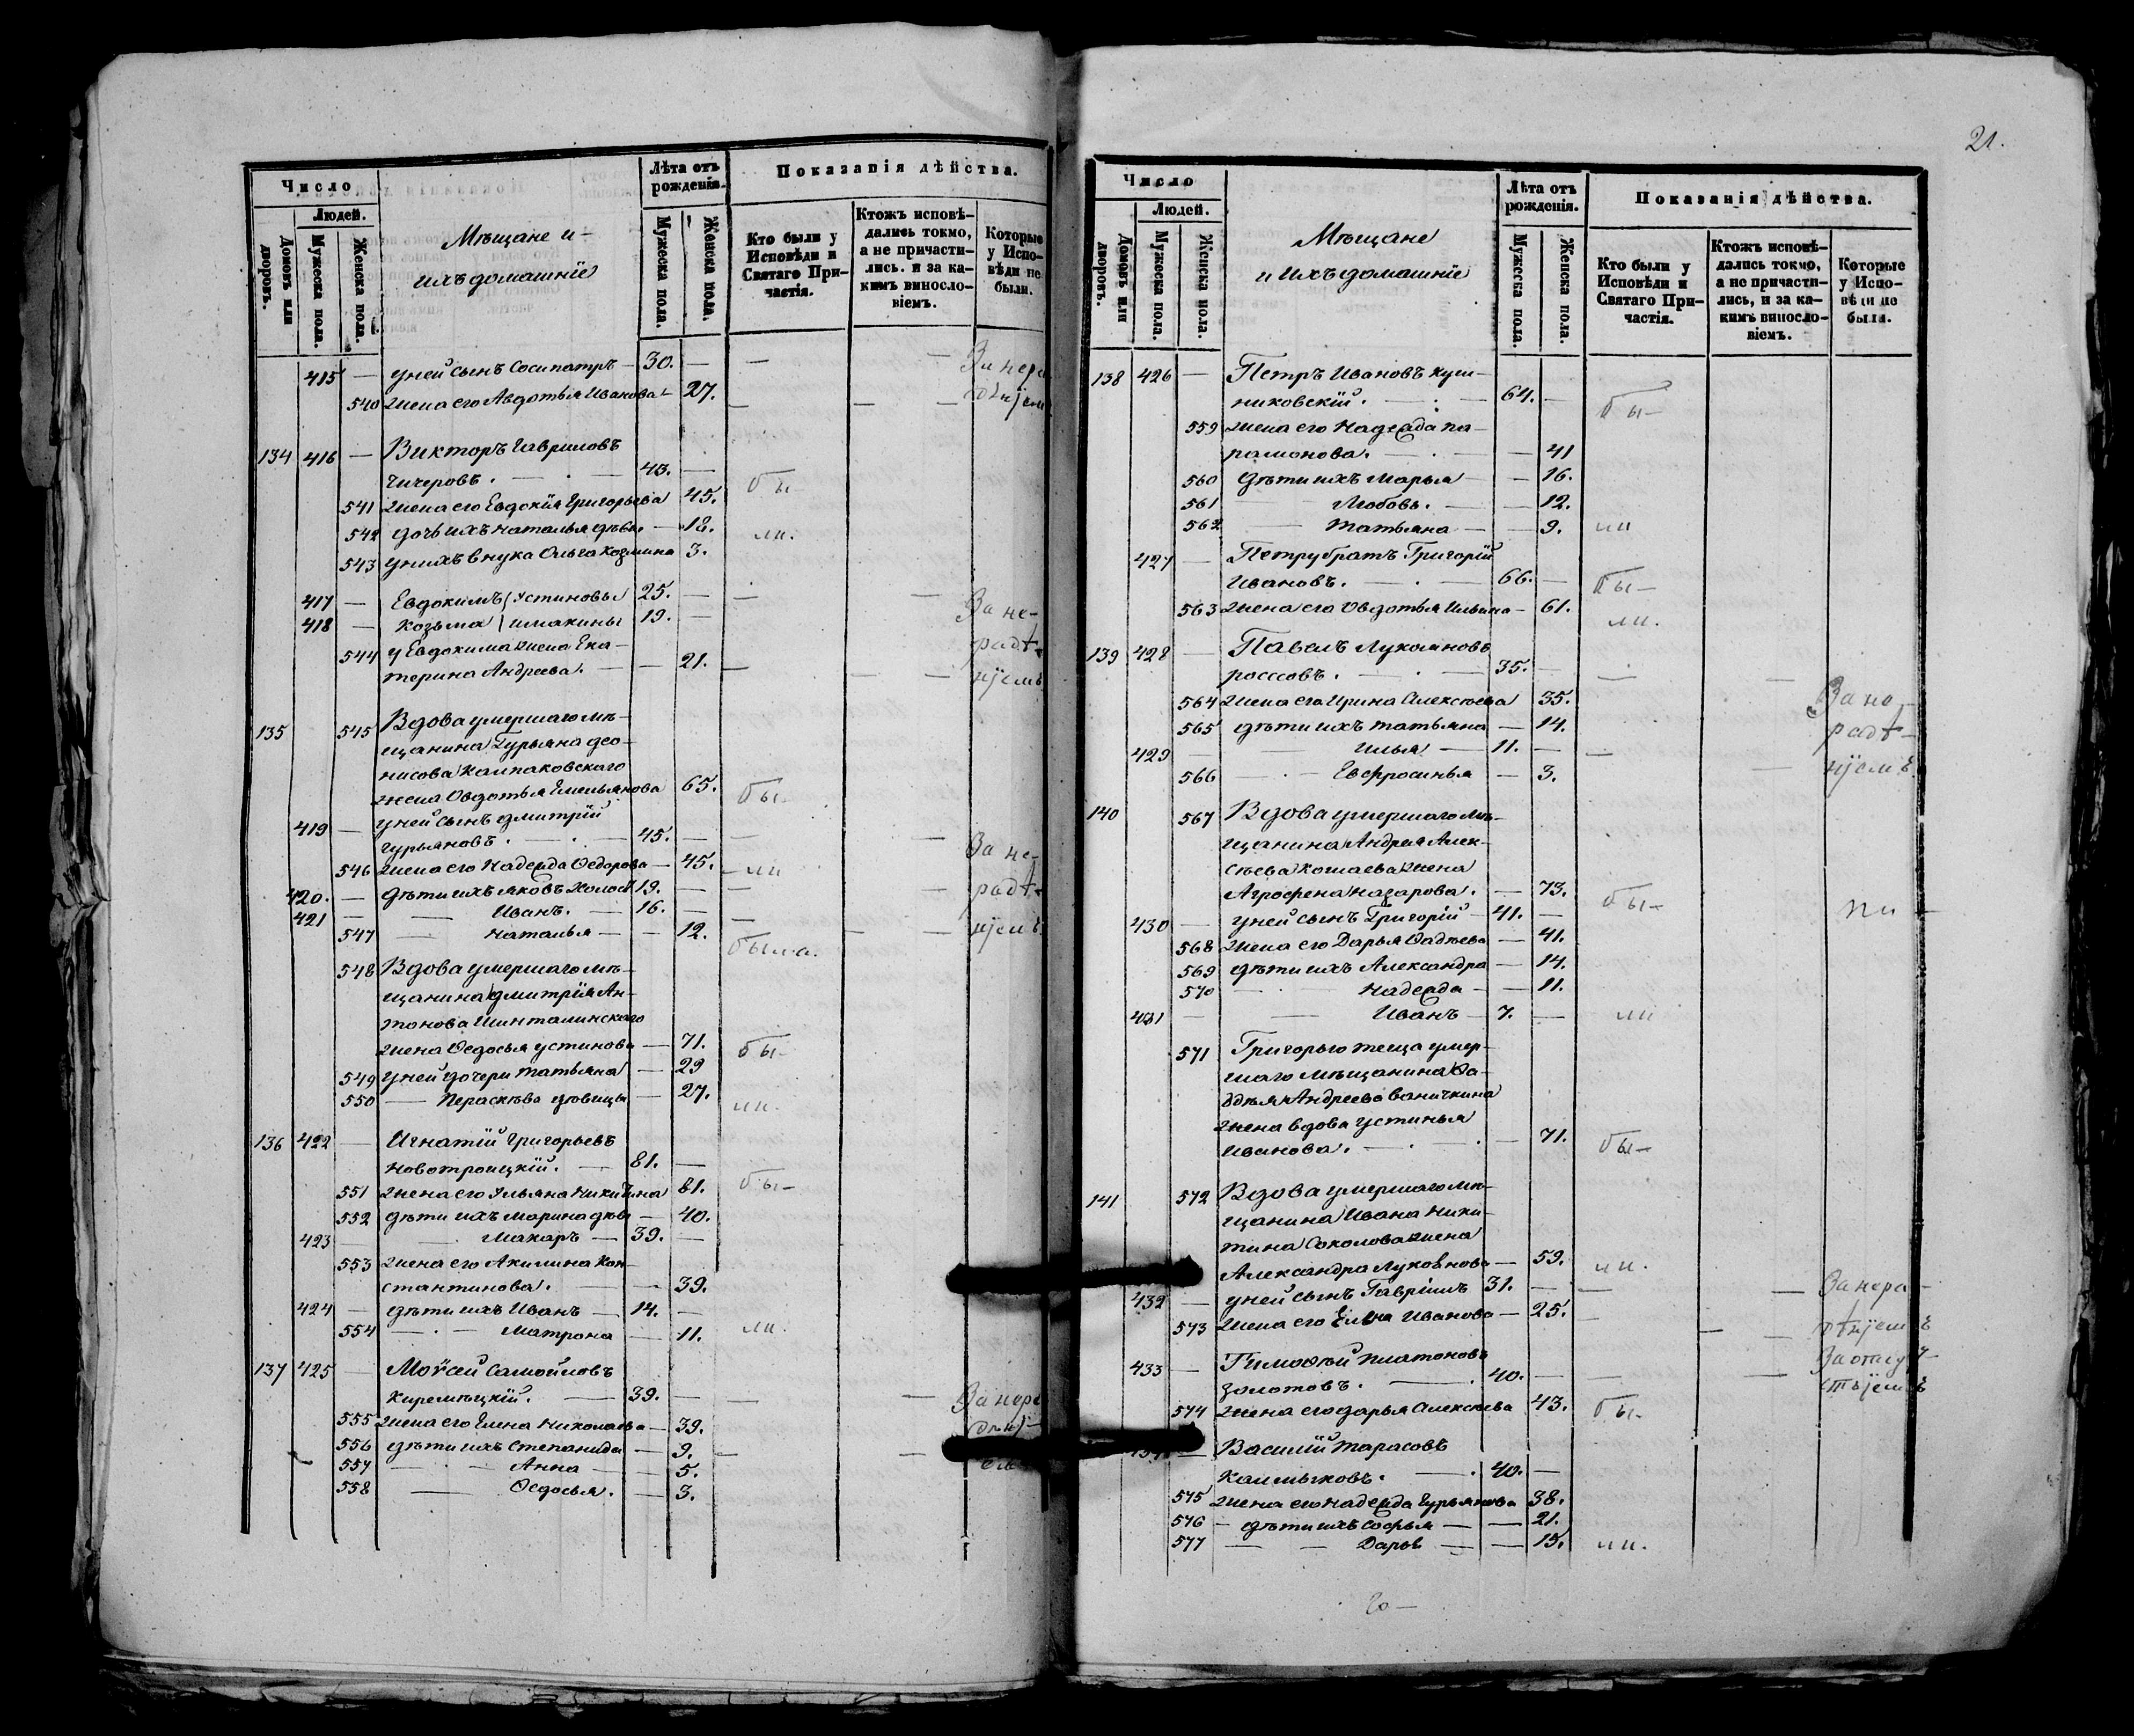 Число
Людей.
Домовъ или дворовъ.
Мужеска пола.
Женска пола.
Мѣщане и
ихъ домашніе
Лѣта отъ рожденія.
Мужеска пола.
Женска пола.
Показанія дѣйства.
Кто были у Исповѣди и Святаго Причастія.
Ктожъ исповѣдались токмо, а не причастились. и за какимъ винословіемъ.
Которые у Исповѣди не были.
415 — у ней сынъ Сосипатръ — 30. — За нера
540 жена его Авдотья Иванова — 27.
134 416 — Викторъ Гавриловъ
Чичеровъ. — 43. —
541 жена его Евдокія Григорьева 45. бы
542 дочь ихъ Наталья дѣв. — 18. ли.
543 у нихъ внука Ольга Козмина 3.
417 — Евдокимъ Устиновы 25. — За не-
418 — Козьма Шмакины 19. — радѣ-
544 у Евдокима жена Ека-
терина Андреева. — 21. — ніемъ
135 545 Вдова умершаго мѣ-
щанина Гурьяна Део-
нисова Колпаковскаго
жена Овдотья Емельянова 65. бы-
419 — у ней сынъ Дмитрій
Гурьяновъ. — 45. — За не-
546 жена его Надежда Ѳедорова — 45. — ли
420. — дѣти ихъ Яковъ холост 19. — радѣ-
421 — Иванъ. — 16. —
547 — Наталья — 12. была. ніемъ
548 Вдова умершаго мѣ-
щанина Дмитрія Ан-
тонова Шинталинскаго
жена Ѳедосья Устинова — 71. бы-
549 у ней дочери Татьяна — 29
550 — Пераскева дѣвицы — 27. ли.
136 422 — Игнатій Григорьевъ
Новотроицкій. — 81. —
551 жена его Ульяна Никитина 81. бы-
552 дѣти ихъ Марина дѣв. — 40.
423 — Макаръ — 39. —
553 жена его Акилина Кон-
стантинова. — 39.
424 — дѣти ихъ Иванъ — 14. —
554 — Матрона — 11. ли.
137 425 — Моѵсей Самойловъ
Киремѣцкій. — 39. — За нера
555 жена его Елена Николаева — 39.
556 дѣти ихъ Степанида — 9.
557 — Анна — 5.
558 — Ѳедосья. — 3.
21.
Число
Людей.
Домовъ или дворовъ.
Мужеска пола.
Женска пола.
Мѣщане
и ихъ домашніе
Лѣта отъ рожденія.
Мужеска пола.
Женска пола.
Показанія дѣйства.
Кто были у Исповѣди и Святаго Причастія.
Ктожъ исповѣдались токмо, а не причастились, и за какимъ винословіемъ.
Которые у Исповѣди не были.
138 426 — Петръ Ивановъ
никовскій. — 64. — бы-
559 жена его Надежда Па-
рамонова. — 41
560 дѣти ихъ Марья — 16.
561 — Любовь. — 12.
562 — Татьяна — 9. ли
427 — Петру братъ Григорій
Ивановъ. — 66. — бы-
563 жена его Овдотья Ильина — 61. ли.
139 428 — Павелъ Лукояновъ
Россовъ. — 35. —
564 жена его Ирина Алексѣева 35. За не-
565 дѣти ихъ Татьяна — 14. радѣ-
429 — Илья — 11. —
566 — Евфросинья — 3. ніемъ
140 567 Вдова умершаго мѣ-
щанина Андрея Алек-
сѣева Кошаева жена
Агрофена Назарова. — 73. бы-
430 — у ней сынъ Григорій — 41. —
568 жена его Дарья Фадѣева — 41.
569 дѣти ихъ Александра — 14.
570 — Надежда — 11.
431 — Иванъ — 7. — ли
571 Григорью теща умер-
шаго мѣщанина Фа-
ддѣя Андреева Ваничкина
жена вдова Устинья
Иванова. — 71. бы-
141 572 Вдова умершаго мѣ-
щанина Ивана Ники-
тина Соколова жена
Александра Луковнова — 59. ли.
432 — у ней сынъ Гавріилъ 31. — За нера-
573 жена его Елена Иванова — 25. — дѣніемъ
433 — Тимофѣй Платоновъ За отсут-
Золотовъ. — 40. — ствіемъ
574 жена его Дарья Алексѣева 43. бы-
— Василій Тарасовъ
Калмыковъ. — 40. —
575 жена его Надежда Гурьянова 38.
576 — дѣти ихъ Софья — 21.
577 — Дарья — 15. ли.